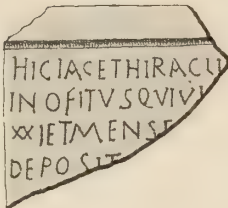 HICIACETHIRACLI
INOFITVSQVIVI
XXIETMENSE
DEPOSIT